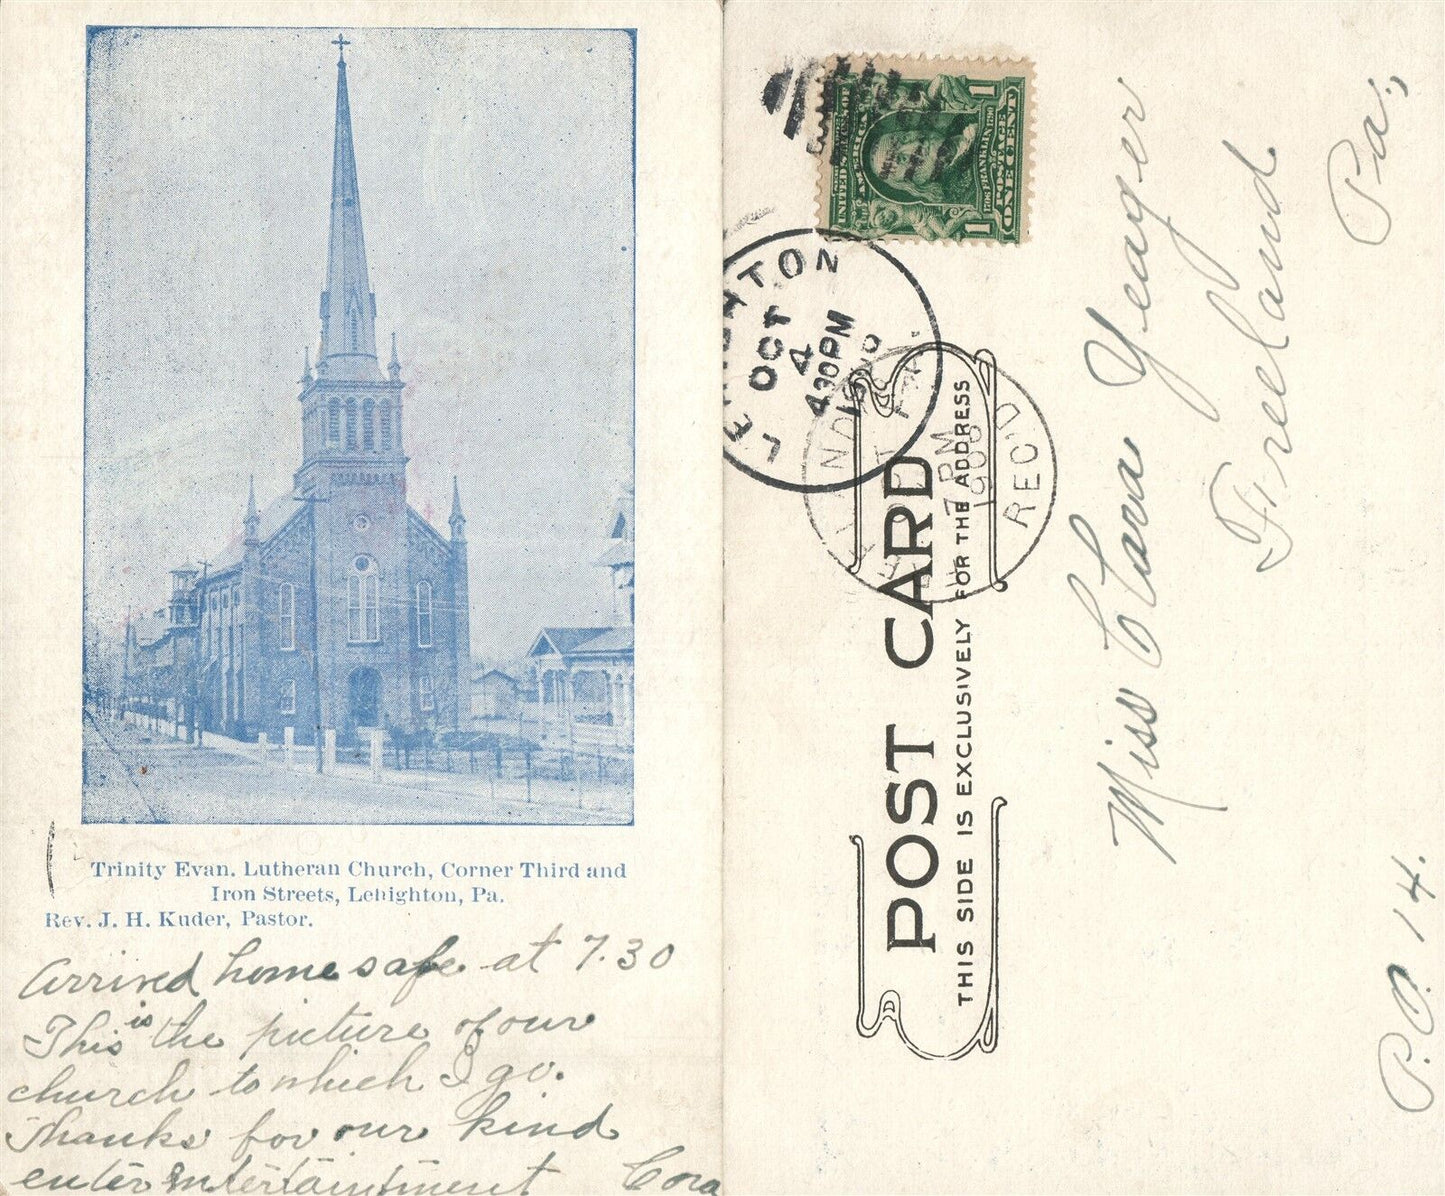 Trinity Evan. Lutheran Church, Corner Third and
Iron Streets, Lehighton, Pa.
Rev. J. H. Kuder, Pastor.
Arrived home safe at 7.30
This is the picture of our
church to which I go.
Thanks for our kind
entertainment Cora
1 1
UNITED STATES OF AMERICA
1706 FRANKLIN 1790
POSTAGE
ONE CENT
LEHIGHTON
OCT
4
430PM
190
7 PM
1906
REC'D
POST CARD
THIS SIDE IS EXCLUSIVELY FOR THE ADDRESS
Miss Clara Yeager
Freeland
Pa.,
P.O. 14.